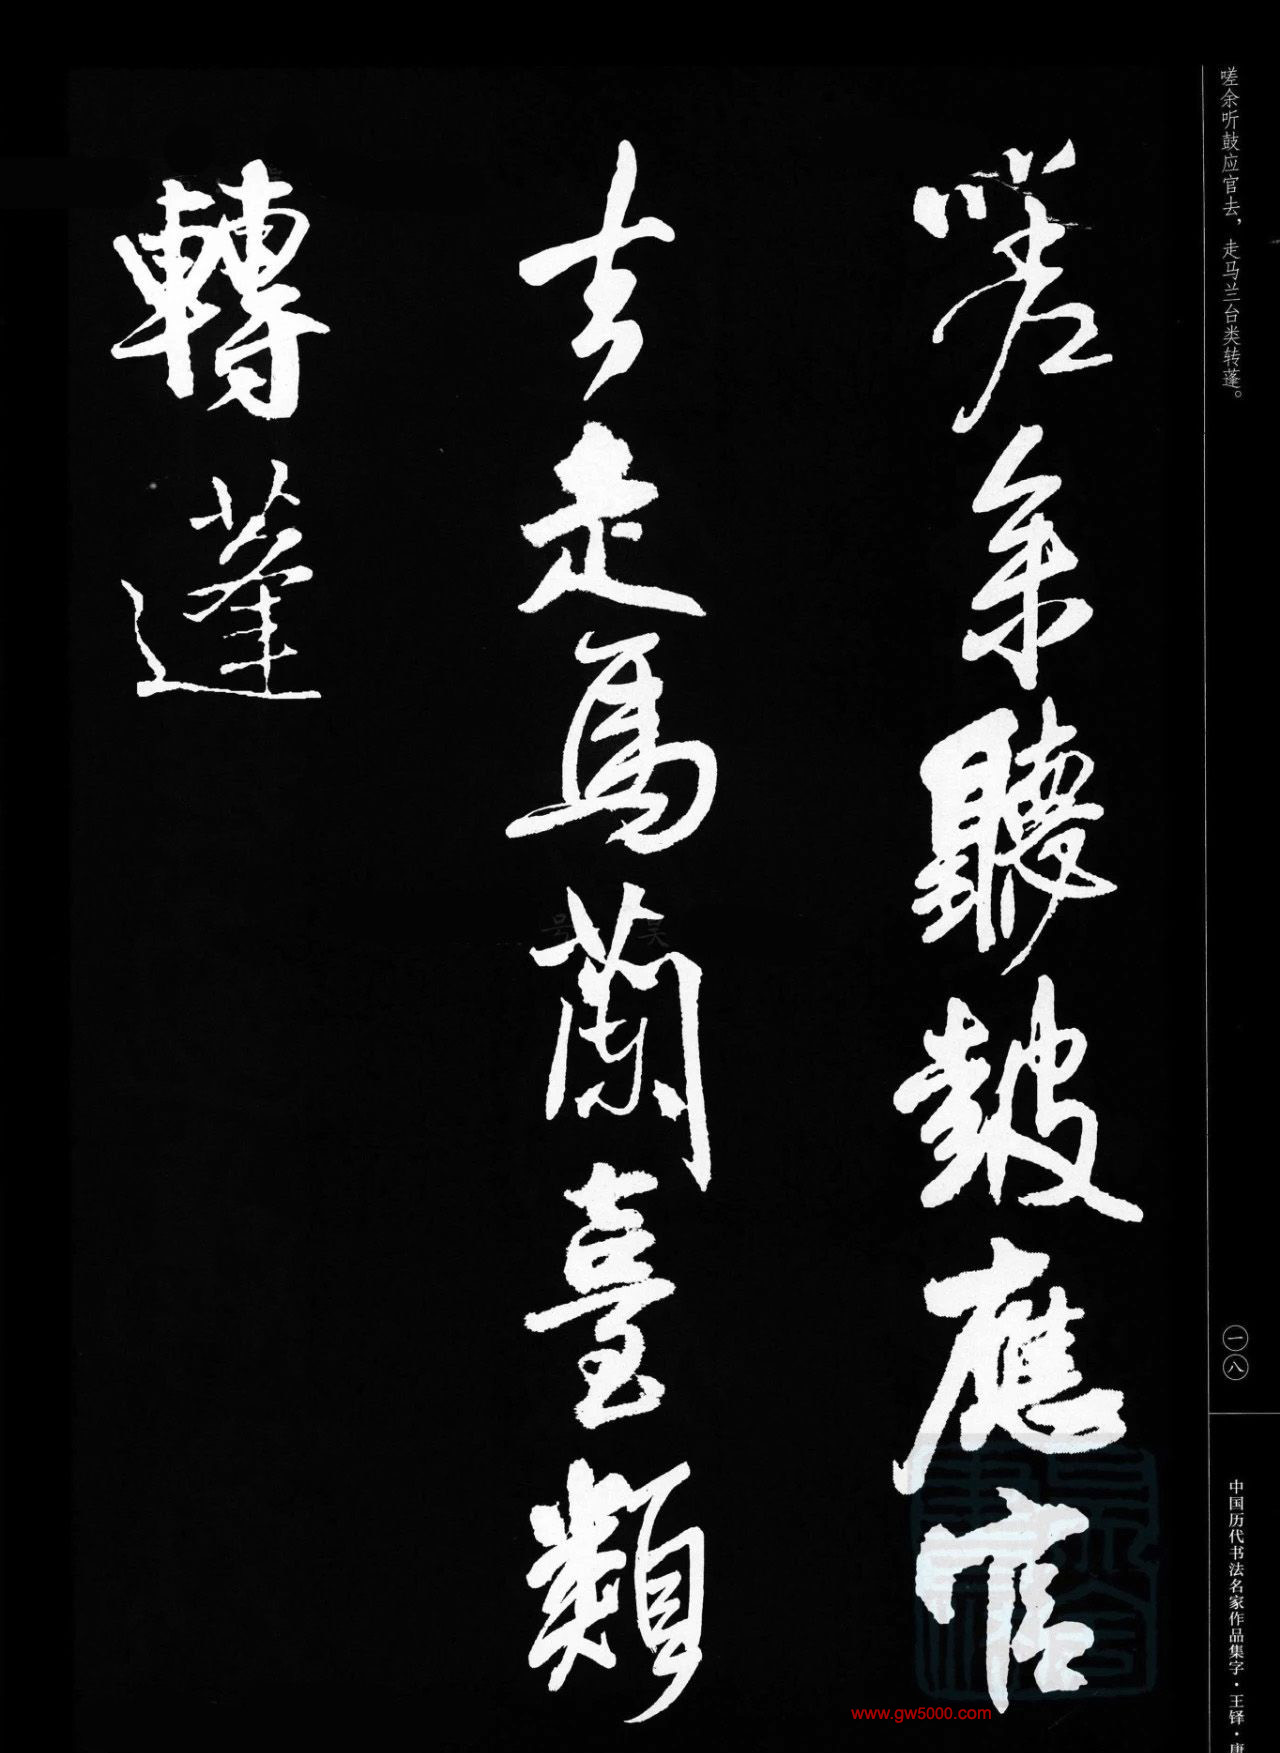 嗟余聽鼓應官
去走馬蘭臺類
轉蓬
嗟余听鼓应官去，走马兰台类转蓬。
一八
中国历代书法名家作品集字·王铎·唐
www.gw5000.com